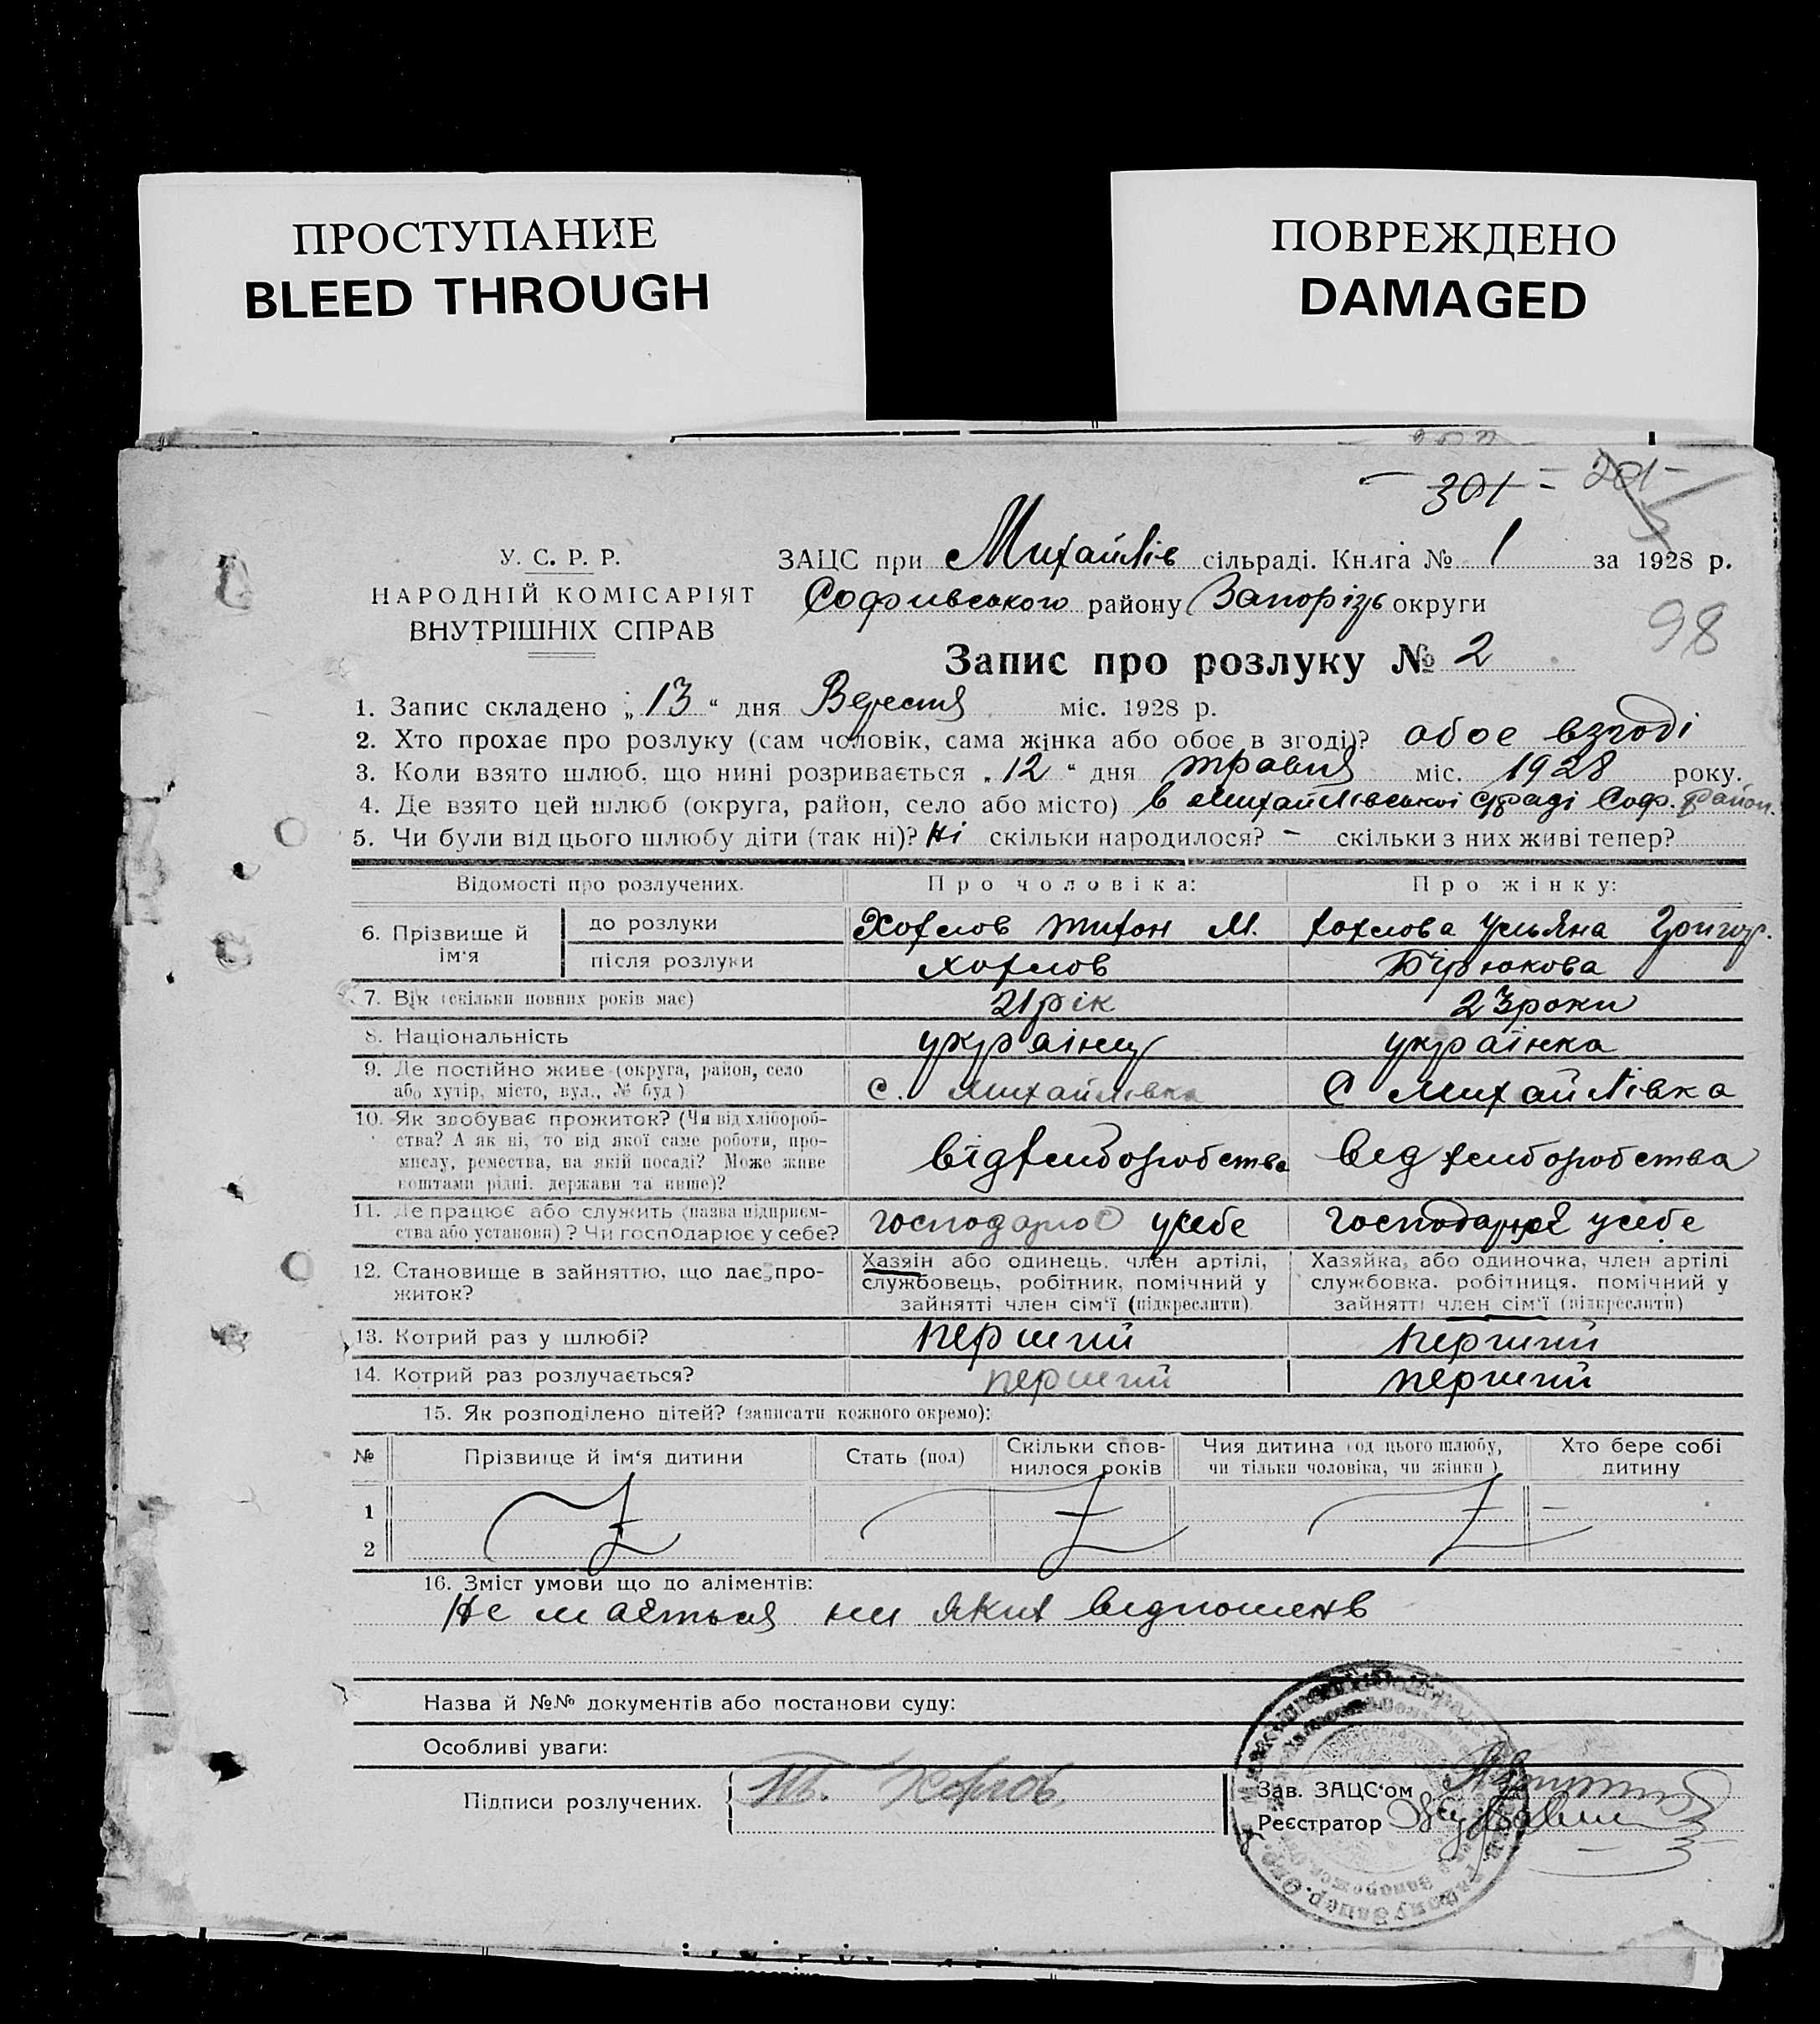 ПРОСТУПАНИЕ
BLEED THROUGH
ПОВРЕЖДЕНО
DAMAGED
- 301 - 201 -
У. С. Р. Р.
НАРОДНІЙ КОМІСАРІЯТ
ВНУТРІШНІХ СПРАВ
ЗАЦС при Михайлів сільраді. Книга № 1 за 1928 р.
Софиевського району Запорізь округи
98
Запис про розлуку № 2
1. Запис складено „13“ дня Вересня міс. 1928 р.
2. Хто прохає про розлуку (сам чоловік, сама жінка або обоє в згоді)? обое взгоді
3. Коли взято шлюб, що нині розривається „12“ дня травня міс. 1928 року.
4. Де взято цей шлюб (округа, район, село або місто) в Михайлівській Соф. район.
5. Чи були від цього шлюбу діти (так ні)? Ні скільки народилося? - скільки з них живі тепер?
Відомості про розлучених. Про чоловіка: Про жінку:
6. Прізвище й ім‘я до розлуки Хохлов Тихон М. Хохлова Ульяна Григор.
після розлуки Хохлов Бірюкова
7. Вік (скільки повних років має) 21 рік 23 роки
8. Національність українц українка
9. Де постійно живе (округа, район, село
або хутір, місто, вул., № буд) с. Михайлівка С Михайлівка
10. Як здобуває прожиток? (Чи від хлібороб-
ства? А як ні, то від якої саме роботи, про-
мислу, ремества, на якій посаді? Може живе
коштами рідні, держави та инше)? від хлиборобства вид хлиборобства
11. Де працює або служить (назва підприєм-
ства або установи)? Чи господарює у себе? господарює усебе господарює усебе
12. Становище в зайняттю, що дає про-
житок?
Хазяїн або одинець, член артілі,
службовець, робітник, помічний у
зайнятті член сім‘ї (підкреслити)
Хазяйка, або одиночка, член артілі
службовка, робітниця, помічний у
зайнятті член сім‘ї (підкреслити)
13. Котрий раз у шлюбі? перший перший
14. Котрий раз розлучається? перший перший
15. Як розподілено дітей? (записати кожного окремо):
№ Прізвище й ім‘я дитини Стать (пол) Скільки спов-
нилося років Чия дитина (од цього шлюбу,
чи тільки чоловіка, чи жінки) Хто бере собі
дитину
1 -
2
16. Зміст умови що до аліментів:
Не мается ни яких видношенв
Назва й №№ документів або постанови суду:
Особливі уваги:
Підписи розлучених.
Зав. ЗАЦС‘ом
Реєстратор